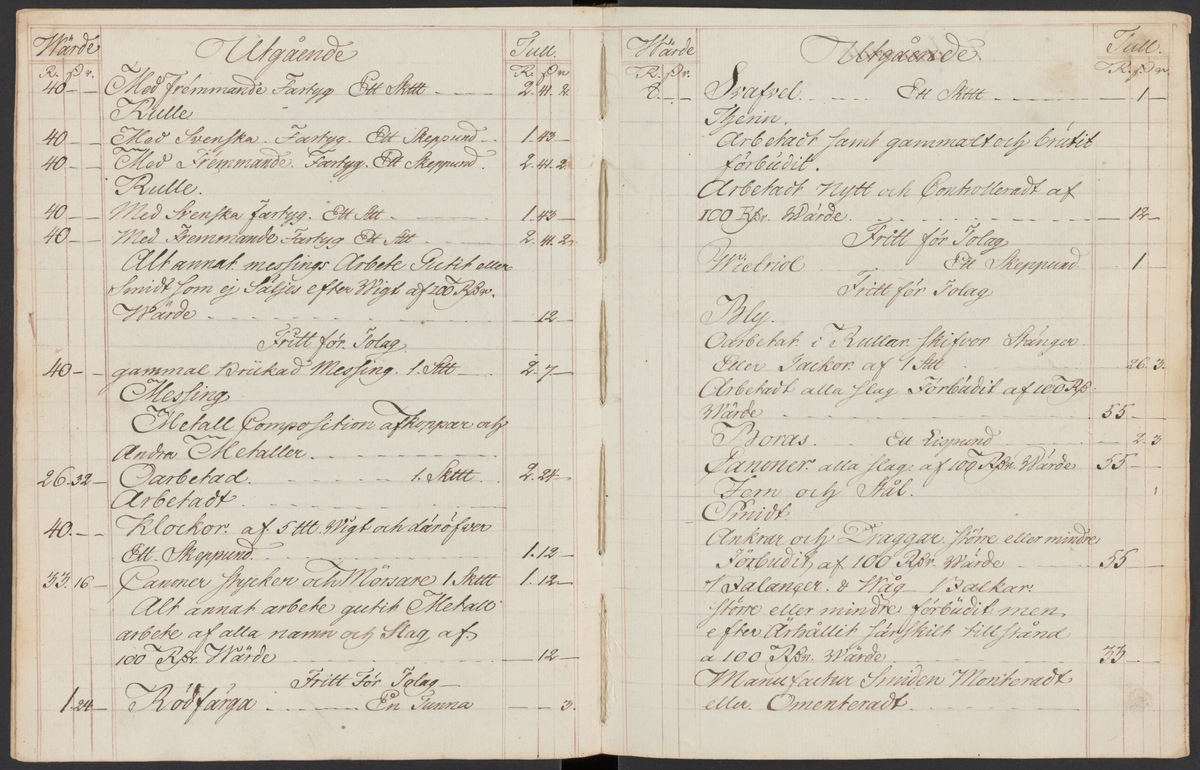 Wärde Utgående Tull.
R. sk r. R. sk r.
40 — — Med främmande Fartyg Ett Skttt 2. 41. 2.
Rulle
40 — — Med Svenska Fartyg Ett Skeppund 1. 43 —
40 — — Med Främmande Fartyg Ett Skeppund 2. 41. 2.
Rulle.
40 — — Med Svenska fartyg. Ett Sttt 1. 43 —
40 — — Med Fremmande Fartyg Ett Sttt 2. 41. 2.
Alt annat messings Arbete Gutit eller
Smidt som ej Säljes efter Wigt af 100 Rdr.
Wärde 12
Fritt för Tolag
40 — — gammal Brückad Messing. 1. Sttt 2. 7 —
Messing
Metall Composition af koppar och
Andra Metaller.
26. 32 — Oarbetad. 1. Skttt 2. 24
Arbetadt
40. — — Klockor. af 5 ttt Wigt och däröfver
Ett. Skeppund 1. 12 —
33. 16 Canoner stycken och Mörsare 1 Skttt 1. 12 —
Alt annat arbete gutit Metall
arbete af alla namn och Slag af
100 Rdr Wärde — 12 —
Fritt För Tolag
1. 24 — Rödfärga En Tunna 3.
Wärde Utgående. Tull.
R. sk r. R. sk r.
8. — — Svafvel. Ett Skttt — 1 —
Tjenn.
Arbetadt samt gammalt och brutit
förbüdit.
Arbetadt Nytt och Controlleradt af
100 Rdr. Wärde. — 12 —
Fritt för Tolag
Wictriol Ett Skeppund 1 —
Fritt för Tolag
Bly.
Oarbetat i Rullar skifvor Stänger
Eller Tackor af 1 Sttt 26. 3.
Arbetadt alla slag Förbüdit af 100 Rdr
Wärde 55 — —
Boras. Ett Lispund 2. 3
Canoner alla slag af 100 Rdr. Wärde 55 — —
Jern och Stål.
Smidt.
Ankrar och Draggar större eller mindre
Förbudit af 100 Rdr. Wärde 55 — —
1 Balanger & Wåg 1 Balkar
större eller mindre förbüdit men
efter Ärhållit särskilt tillstånd
a 100 Rdr. Wärde 33 —
Manufactur Smiden Monteradt
eller Omenteradt.